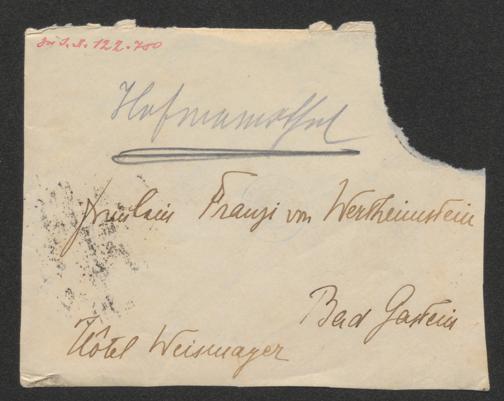 Zu I.N. 122.700
Hofmannsthal
Fräulein Franzi von Wertheimstein
Bad Gastein
Hôtel Weismayer